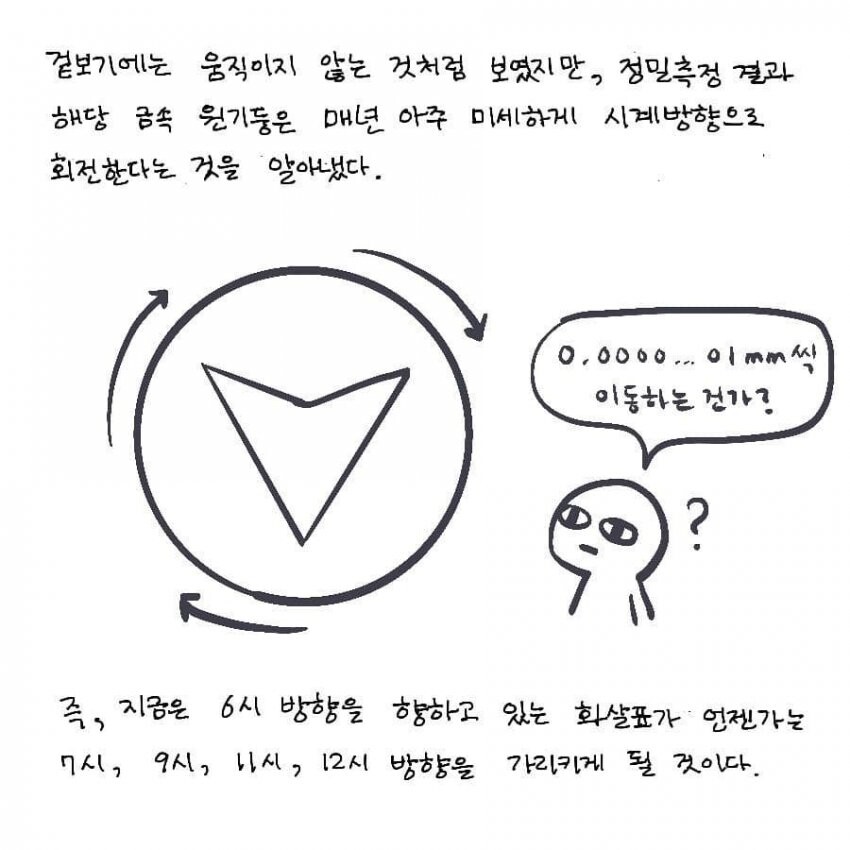 겉보기에는 움직이지 않는 것처럼 보였지만, 정밀측정 결과
해당 금속 원기둥은 매년 아주 미세하게 시계방향으로
회전한다는 것을 알아냈다.
0.0000...01mm씩
이동하는 건가?
?
즉, 지금은 6시 방향을 향하고 있는 화살표가 언젠가는
7시, 9시, 11시, 12시 방향을 가리키게 될 것이다.